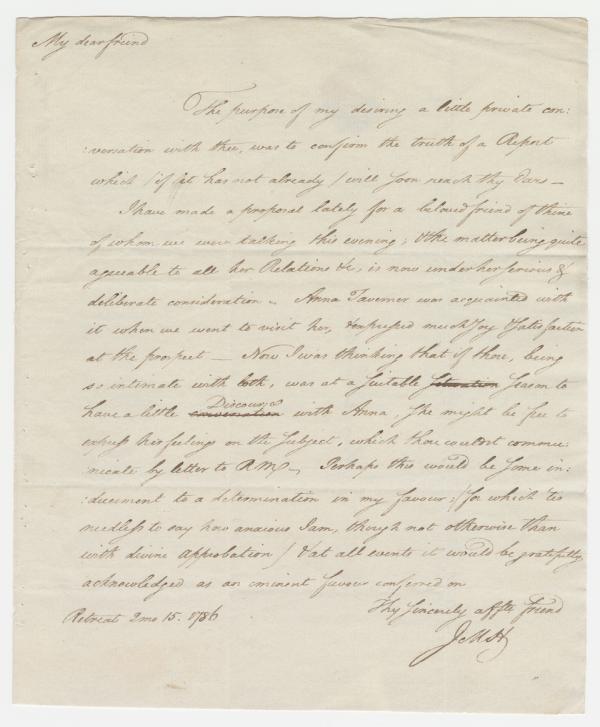 My dear freind
The purpose of my desiring a little private con:
:versation with thee, was to confirm the truth of a Report
which (if it has not already) will soon reach thy Ears —
I have made a proposal lately for a beloved friend of thine
of whom we were talking this evening; & the matter being quite
agreeable to all her Relations &c, is now under her serious &
deliberate consideration. Anna Tavernor was acquainted with
it when we went to visit her, & expressed much Joy & Satisfaction
at the prospect — Now I was thinking that if thou, being
so intimate with both, was at a suitable Situation season to
Discourse
have a little conversation with Anna, She might be free to
express her feelings on the Subject, which thou couldst commu:
nicate by letter to RM — Perhaps this would be some in:
:ducement to a determination in my favour; (for which 'tis
needless to say how anxious I am, though not otherwise than
with divine approbation) & at all events it would be gratefully
acknowledged as an eminent favour conferred on
Thy sincerely affte friend
Retreat 2mo 15. 1786
JMH